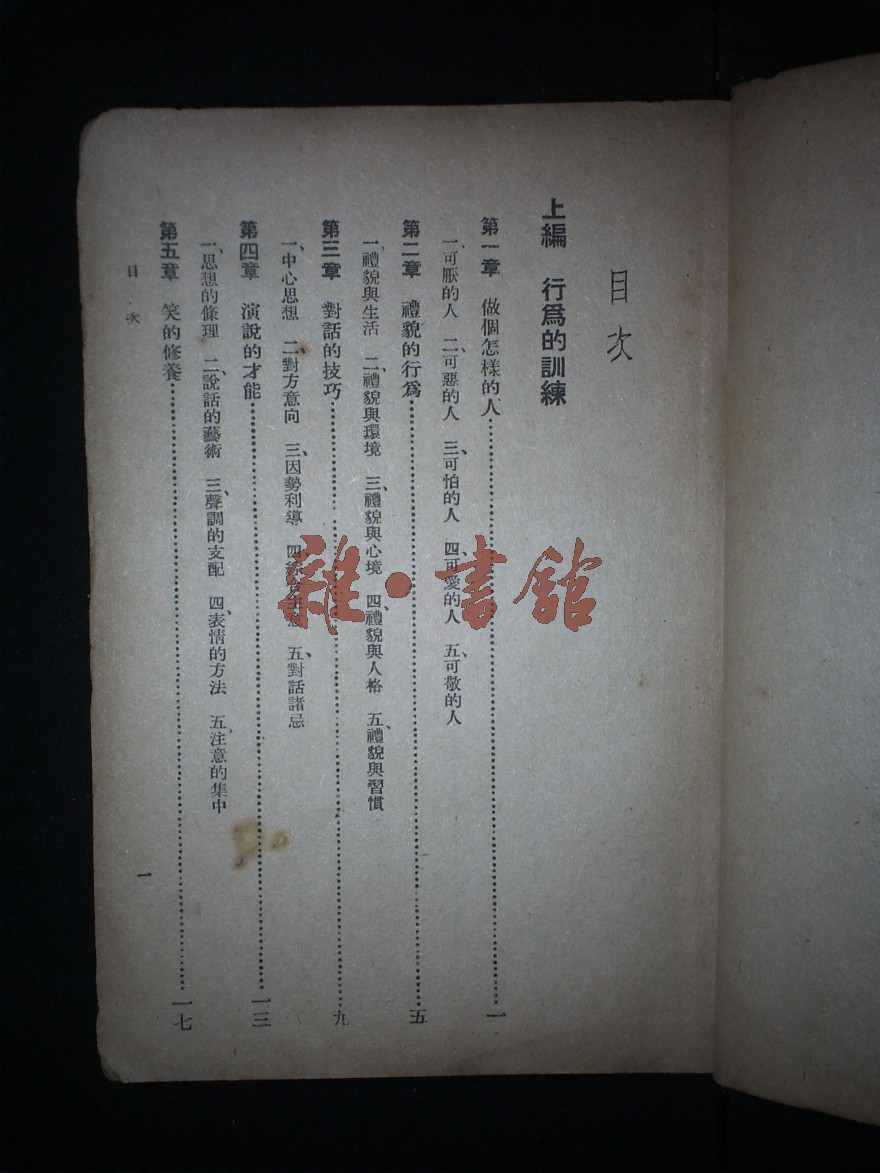 目次
上編　行爲的訓練
第一章　做個怎樣的人……一
一、可厭的人　二、可惡的人　三、可怕的人　四、可愛的人　五、可敬的人
第二章　禮貌的行爲……五
一、禮貌與生活　二、禮貌與環境　三、禮貌與心境　四、禮貌與人格　五、禮貌與習慣
第三章　對話的技巧……九
一、中心思想　二、對方意向　三、因勢利導　四、綜合生意　五、對話諸忌
第四章　演說的才能……一三
一、思想的條理　二、說話的藝術　三、聲調的支配　四、表情的方法　五、注意的集中
第五章　笑的修養……一七
目次
一
雜·書館